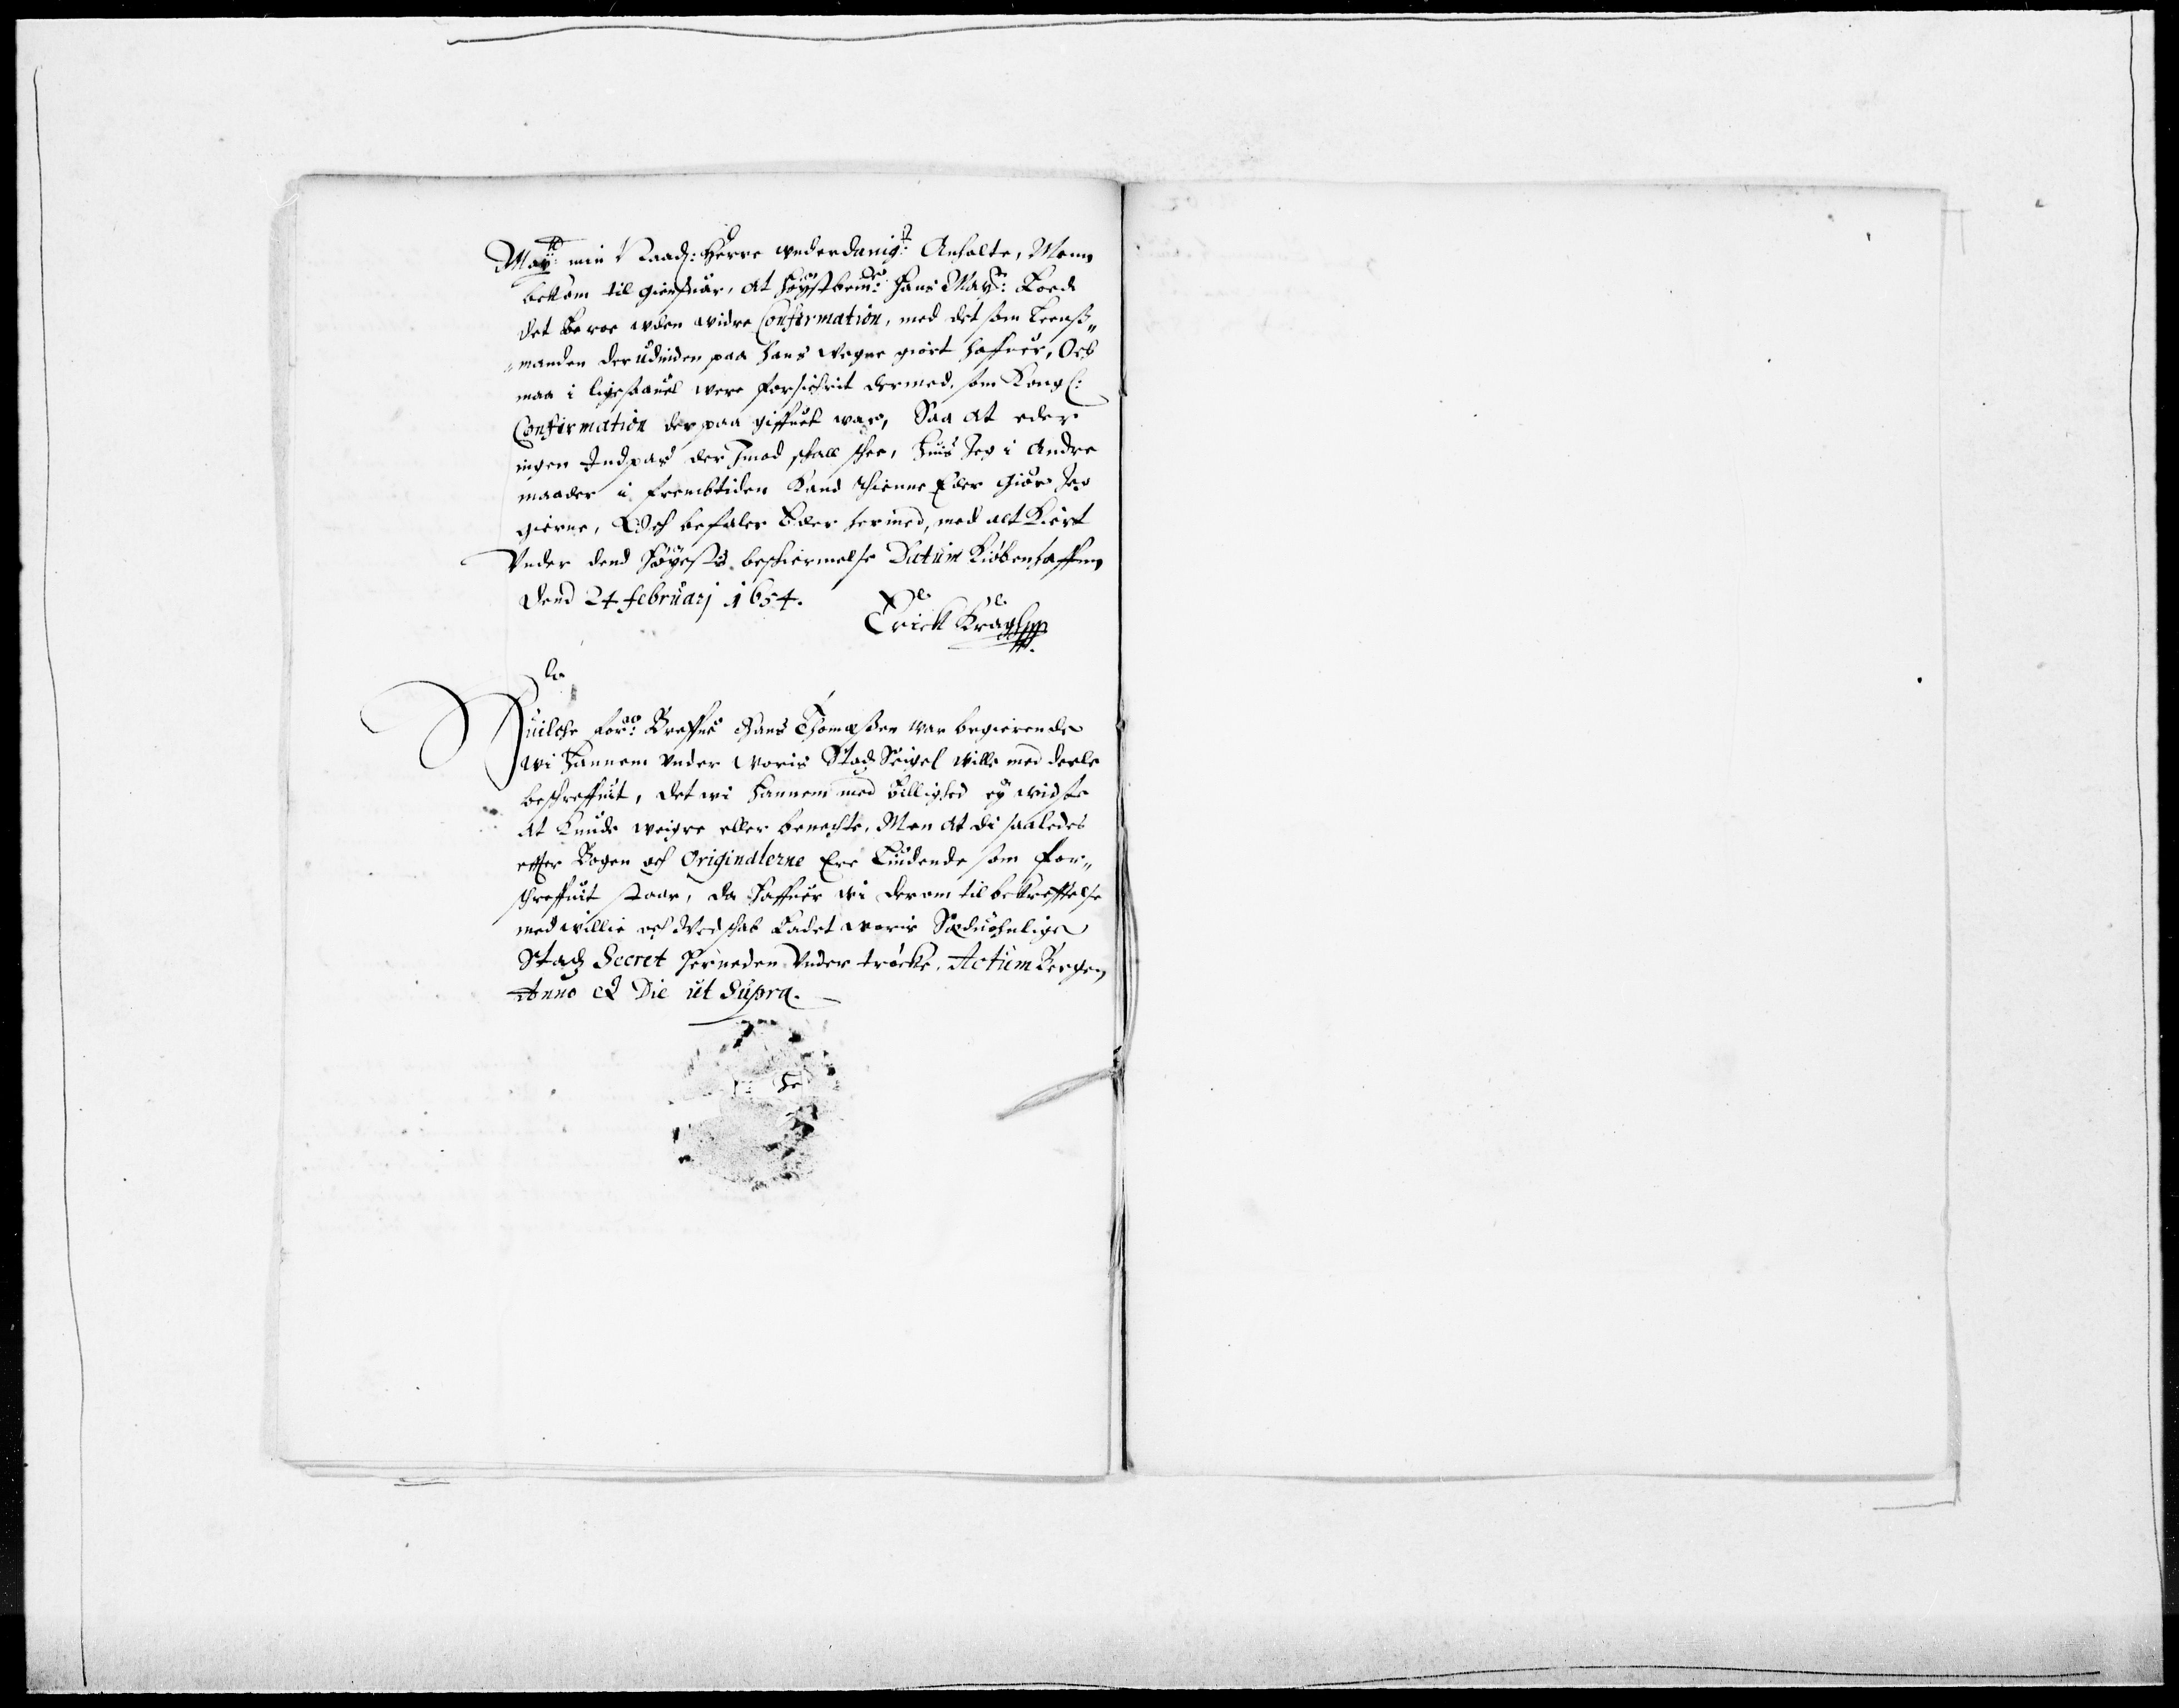 May:tt min Naad: Herre underdanigt: Anholte, Menn
bekom til giensuar, at høystbem:te Hans May:tt Loed
det beroe uden widre Confirmation, med det som Leens„
„manden derudinden paa Hans wegne giort haffuer, Och
maa i ligesaauel were forsichrit dermed, som Kongl:
Confirmation derpaa giffuet war, Saa at eder
ingen Indpas der Imod skall schee, huis Jeg i Andre
maader i fremtiden kand thienne Eder Giør Jeg
gierne, Och befaler Eder hermed, med alt Kiert
Under dend Høyestis beschiermelse Datum Kiøbenhaffn
Dend 24 februarj 1654.
Erick Krag
Huilche for:ne Breffue Hans Thomessen war begierende
wi Hannem under woris Stadz Seigel wille med deele
beschreffuit, det wi Hannem med billighed ey widste
at kunde weigre eller benechte, Men at di saaledes
effter Bogen och Originalerne Ere Liudende som for„
schreffuit staar, da haffuer wi derom til bekrefftelse
med willie och Widschab Ladet woris Sæduohnlige
Stadz Secret herneden under trøcke. Actum Bergen
Anno et Die ut Supra.